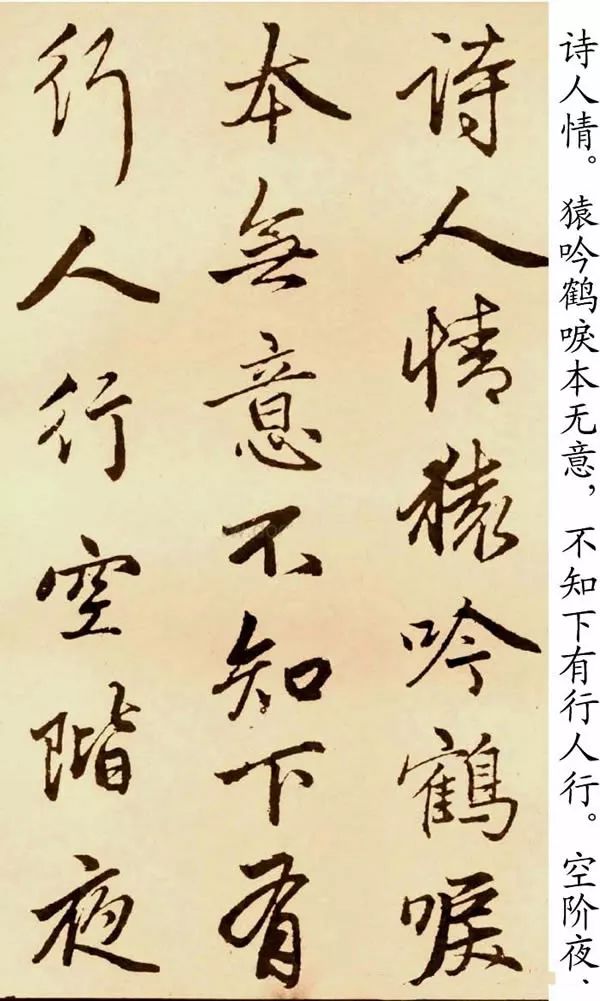 诗人情。猿吟鹤唳本无意，不知下有行人行。空阶夜、
詩人情猿吟鶴唳
本無意不知下有
行人行空階夜